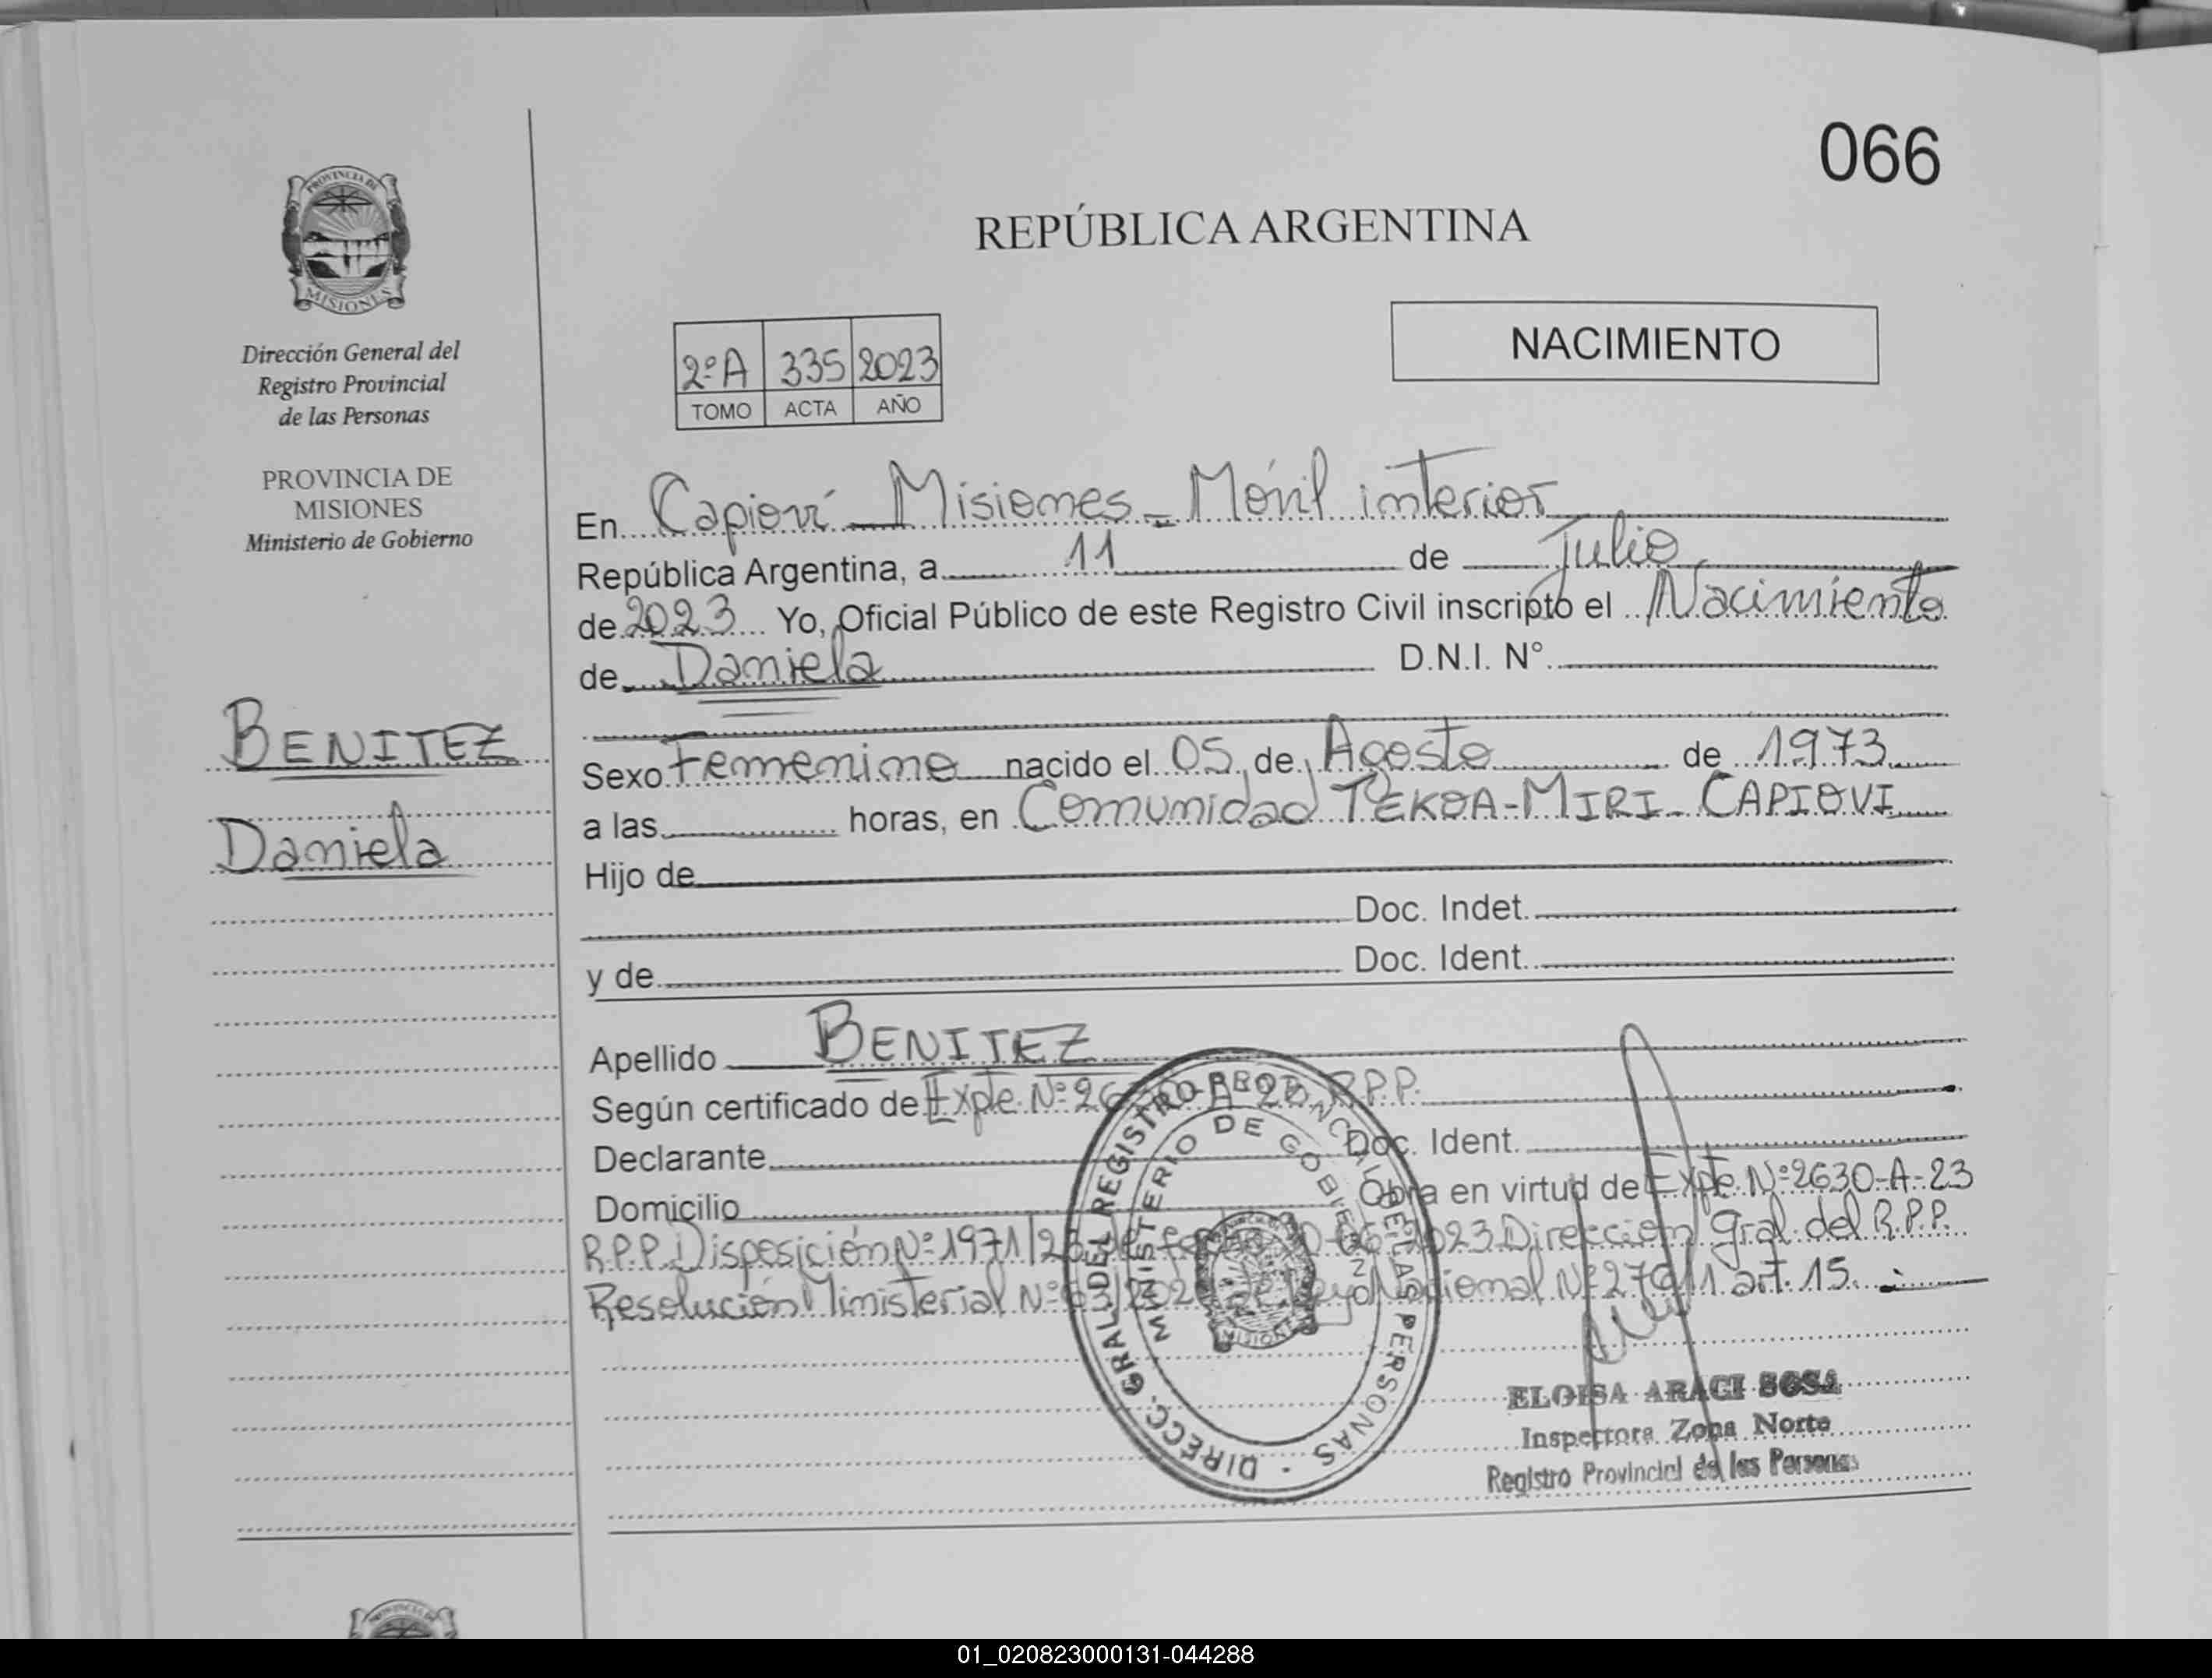 066
PROVINCIA DE
MISIONES
Dirección General del
Registro Provincial
de las Personas
PROVINCIA DE
MISIONES
Ministerio de Gobierno
BENITEZ
Daniela
REPÚBLICA ARGENTINA
NACIMIENTO
2ºA 335 2023
TOMO ACTA AÑO
En Capioví - Misiones - Móvil interior
República Argentina, a 11 de Julio
de 2023 Yo, Oficial Público de este Registro Civil inscripto el Nacimiento
de Daniela D.N.I. N°.
Sexo Femenino nacido el 05 de Agosto de 1973
a las horas, en Comunidad TEKOA-MIRI - CAPIOVI
Hijo de
Doc. Indet.
y de Doc. Ident.
Apellido BENITEZ
Según certificado de Expte Nº 2630-A-23 R.P.P.
Declarante Doc. Ident.
Domicilio Obra en virtud de Expte Nº 2630-A-23
R.P.P. Disposición Nº 1971/23 de fecha 06-2023 Dirección Gral. del R.P.P.
Resolución Ministerial Nº 63/202 Ley Nacional Nº 27611 art. 15.
DIRECC. GRAL. DEL REGISTRO PROVINCIAL DE LAS PERSONAS
MINISTERIO DE GOBIERNO
MISIONES
ELOISA ARACI SOSA
Inspectora Zona Norte
Registro Provincial de las Personas
01_020823000131-044288